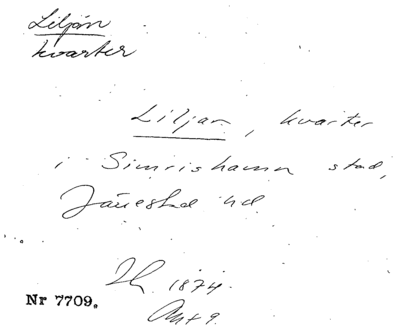 Liljan
kvarter
Liljan, kvarter
i Simrishamn stad,
Järrestad hd.
1874.
Nr 7709.